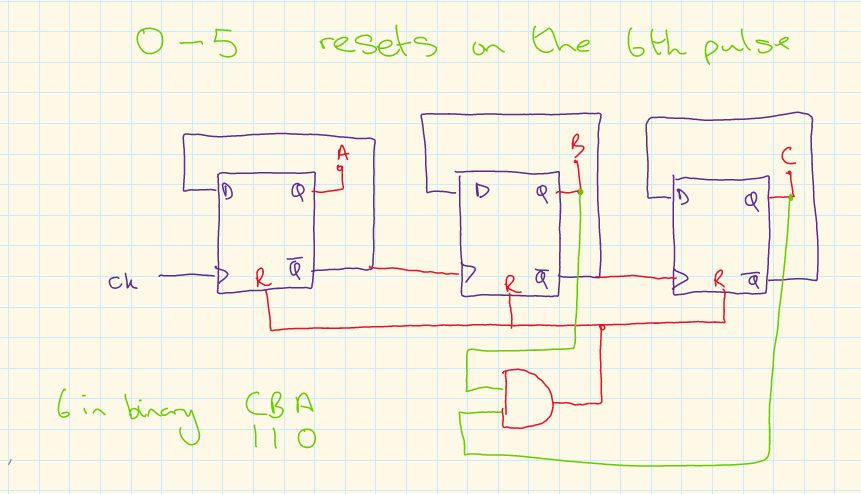 0-5 resets on the 6th pulse
A
B
C
D Q
D Q
D Q
Ck R Q̅
R Q̅
R Q̅
6 in binary CBA
110